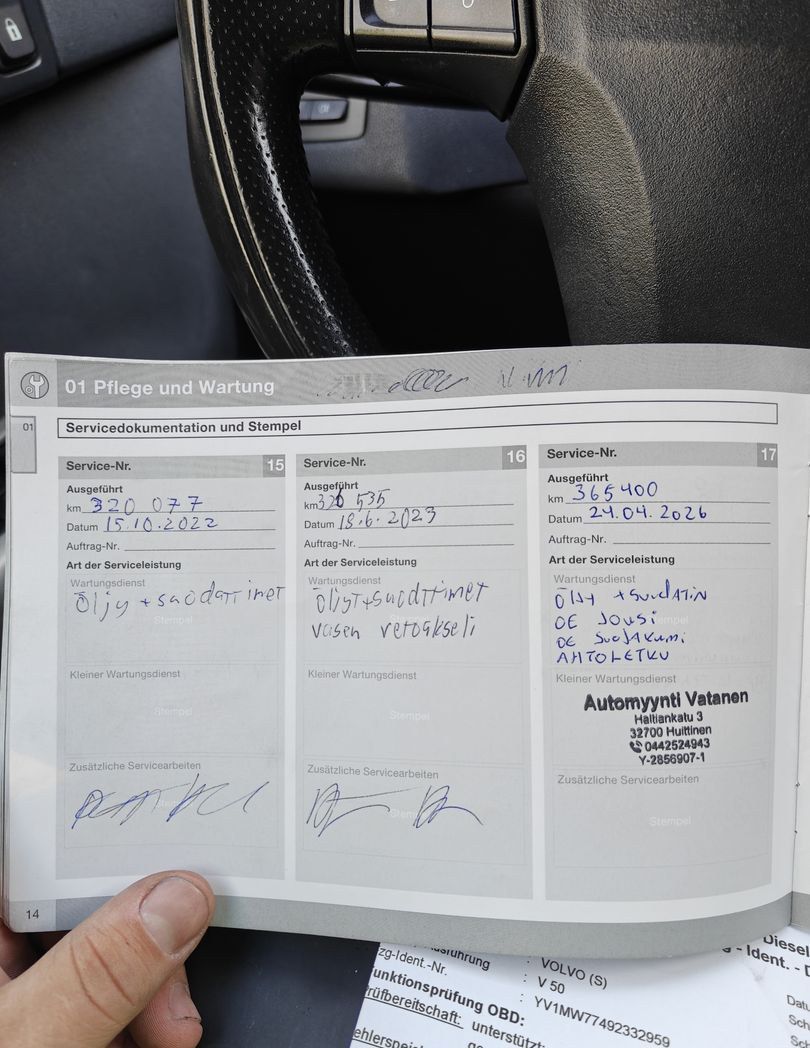 01 Pflege und Wartung
01
Servicedokumentation und Stempel
Service-Nr. 15
Ausgeführt
km 320 077
Datum 15.10.2022
Auftrag-Nr.
Art der Serviceleistung
Wartungsdienst
Öljy + suodattimet
Stempel
Kleiner Wartungsdienst
Stempel
Zusätzliche Servicearbeiten
Service-Nr. 16
Ausgeführt
km 326 535
Datum 18.6.2023
Auftrag-Nr.
Art der Serviceleistung
Wartungsdienst
Öljyt+suodattimet
vasen vetoakseli
Kleiner Wartungsdienst
Stempel
Zusätzliche Servicearbeiten
Stempel
Service-Nr. 17
Ausgeführt
km 365400
Datum 24.04.2026
Auftrag-Nr.
Art der Serviceleistung
Wartungsdienst
ÖLJY + SUODATIN
OE JOUSI
OE SUOJAKUMI
AHTOLETKU
Kleiner Wartungsdienst
Automyynti Vatanen
Haltiankatu 3
32700 Huittinen
0442524943
Y-2856907-1
Zusätzliche Servicearbeiten
Stempel
14
Diesel
: VOLVO (S)
zg-Ident.-Nr. : V 50
unktionsprüfung OBD: : YV1MW77492332959
rüfbereitschaft: unterstützt:
ehlerspei
- Ident. -
Datu
Sch
Sc